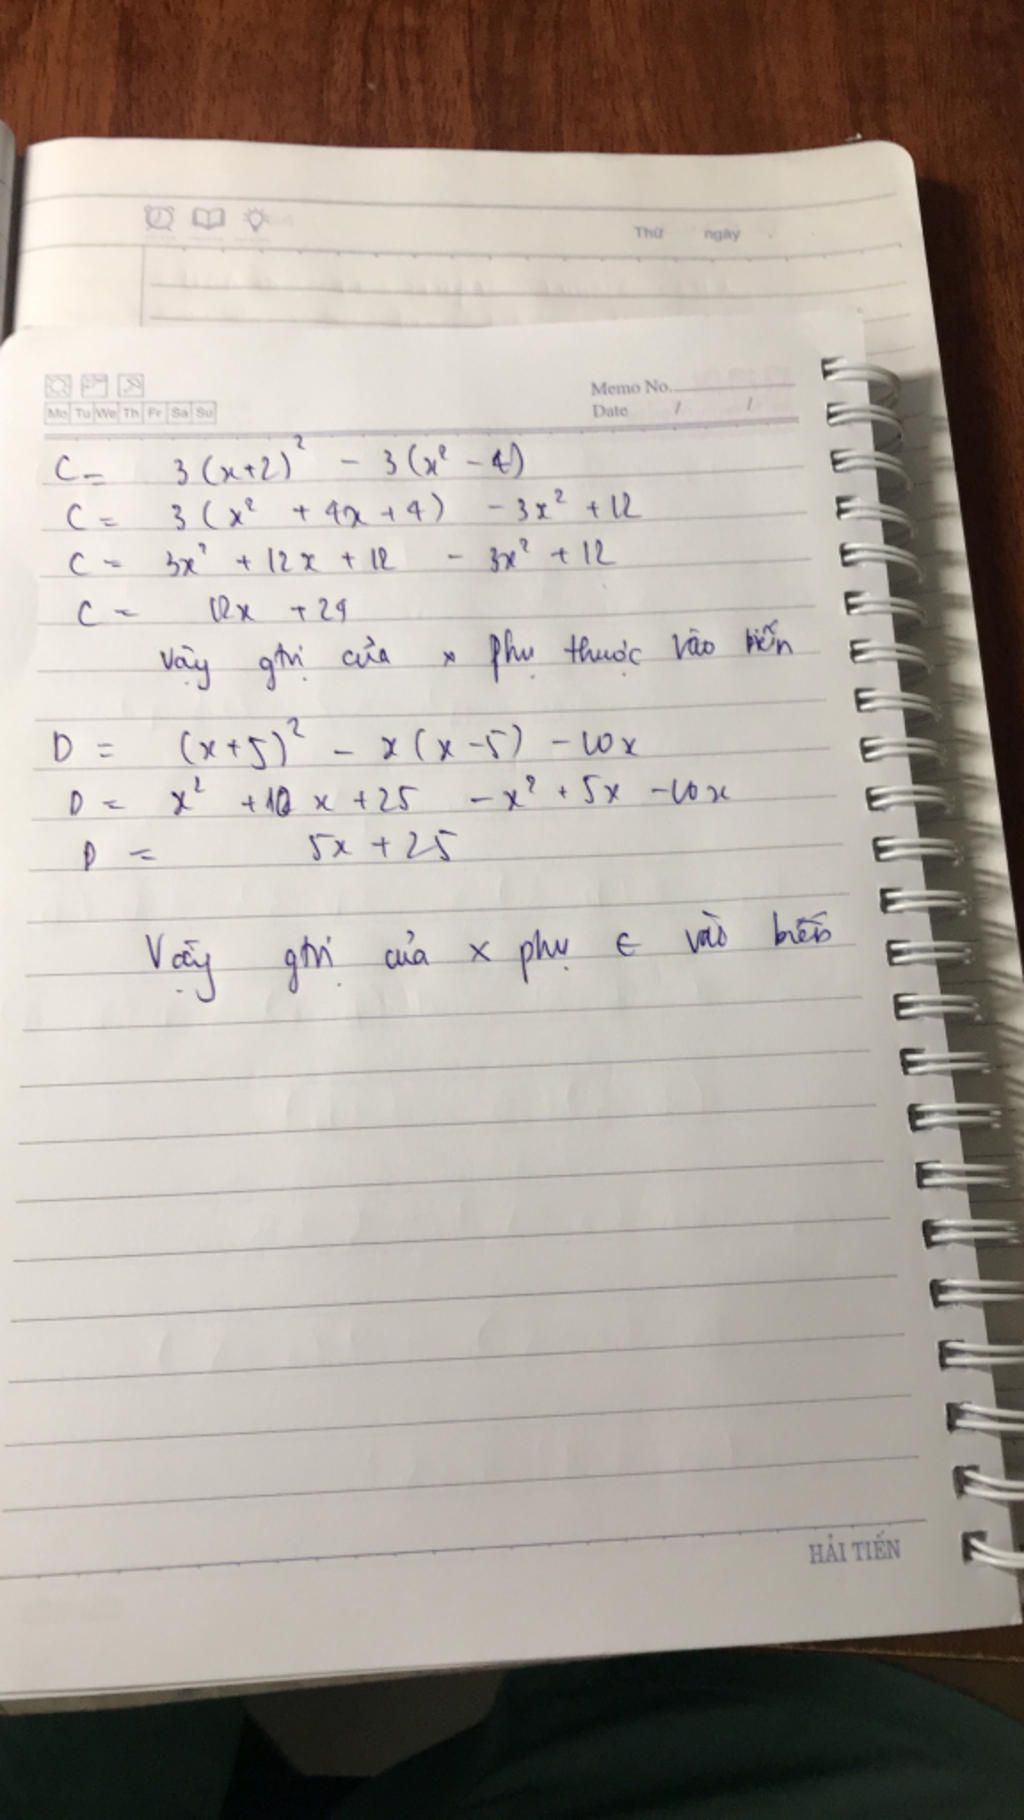 Thứ ngày
Memo No.
Mo Tu We Th Fr Sa Su
Date / /
C = 3(x+2)² - 3(x² - 4)
C = 3(x² + 4x + 4) - 3x² + 12
C = 3x² + 12x + 12 - 3x² + 12
C = 12x + 24
Vậy gtrị của x phụ thuộc vào biến
D = (x+5)² - x(x-5) - 10x
D = x² + 10x + 25 - x² + 5x - 10x
D = 5x + 25
Vậy gtrị của x phụ ∈ vào biến
HẢI TIẾN